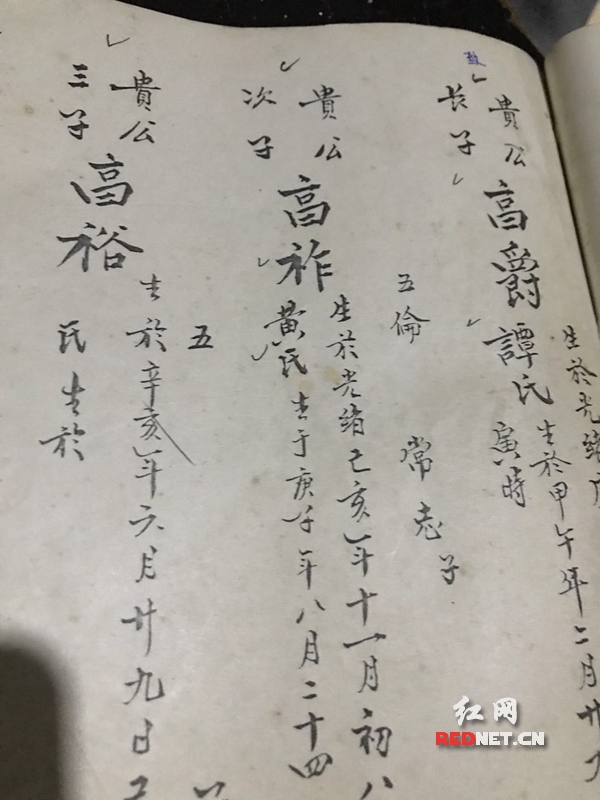 貴公
長子
高爵
譚氏
生於光緒
生於甲午年二月廿
寅時
五倫
常志子
貴公
次子
高祚
黃氏
生於光緒己亥年十一月初八
生于庚子年八月二十四
五
貴公
三子
高裕
生於辛亥年六月廿九日
氏生於
红网
REDNET.CN